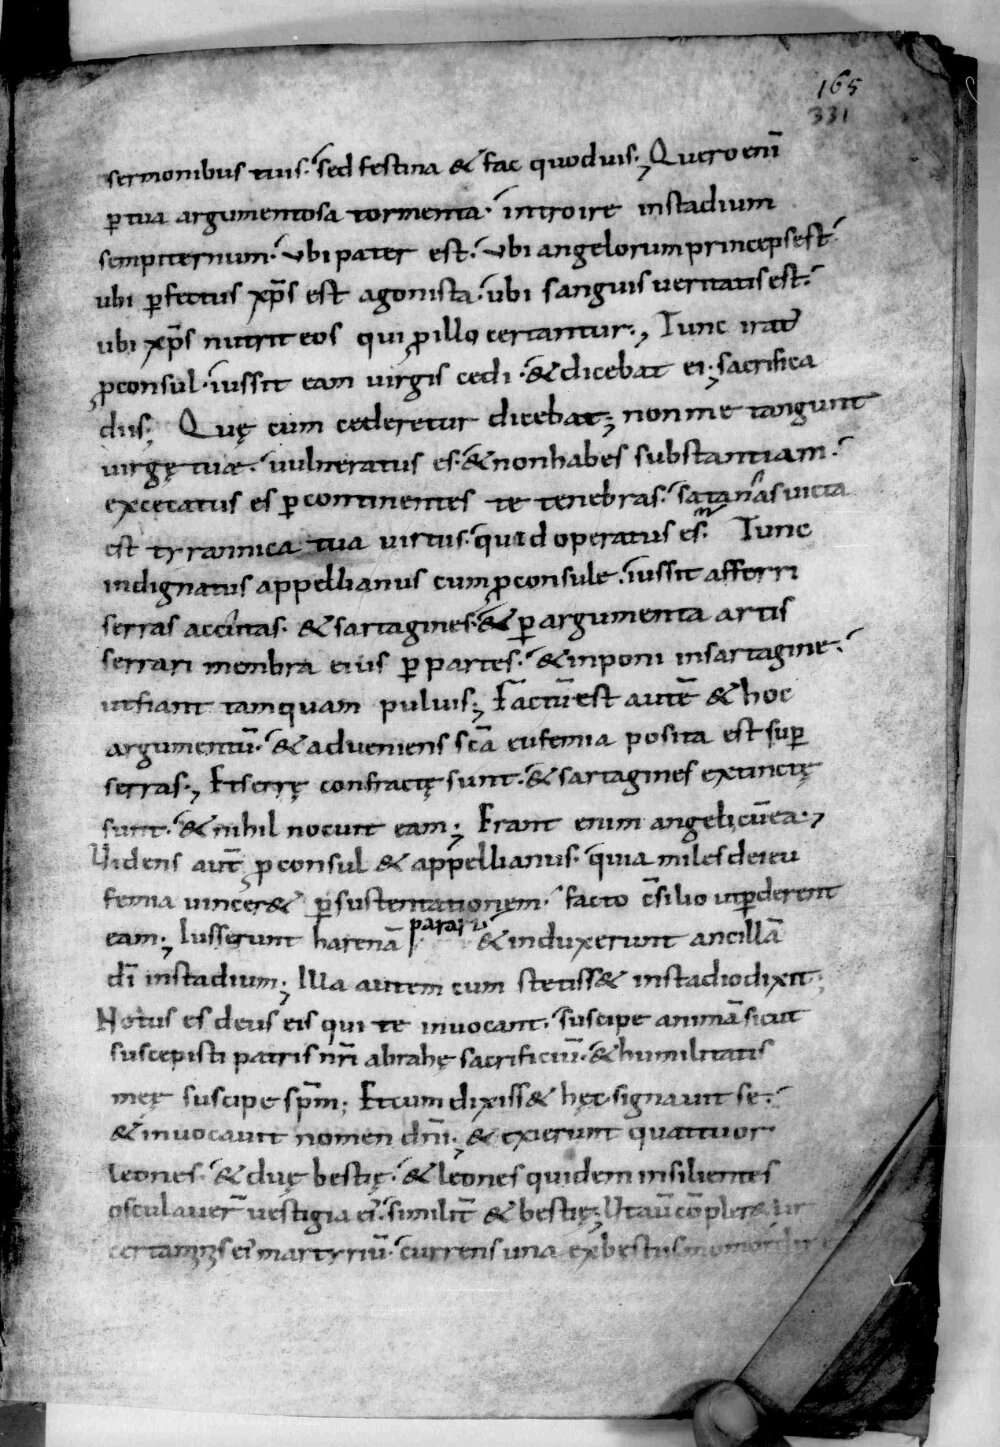 165
331
sermonibus tuis. sed festina & fac quoduis; Quero enī
p̱ tua argumentosa tormenta. introire instadium
sempiternum. ubi pater est. ubi angelorum princeps est.
ubi p̱fectus xp̄s est agonista. ubi sanguis ueritatis est.
ubi xp̄s nutrit eos qui ꝓillo certantur., Tunc irat᾽
ꝓconsul. iussit eam uirgis cedi. & dicebat ei; sacrifica
diis; Quę cum cederetur dicebat; non me tangunt
uirgę tuæ. uulneratus es. & nonhabes substantiam.
excecatus es p̱ continentes te tenebras. satanas uicta
est tyrannica tua uirtus. quid operatus es. Tunc
indignatus appellianus cum ꝓconsule. iussit afferri
serras accintas. & sartagines. & p̱ argumenta artis
serrari menbra eius p̱ partes. & inponi insartagine.
utfiant tamquam puluis; Factū est autē & hoc
argumentū. & adueniens scā eufemia posita est sup̱
serras., Et serrę confractę sunt. & sartagines extinctę
sunt. & nihil nocuit eam; Erant enim angeli cū ea.,
Uidens aut̄ ꝓconsul & appellianus. quia miles dei eu
femia uincer& p̱ sustentationem. facto c̄silio utp̱derent
eam; Iusserunt harenā parari & induxerunt ancillā
dī instadium; Illa autem cum stetiss& instadio dixit;
Notus es deus eis qui te inuocant. suscipe animā sicut
suscepisti patris nr̄i abrahę sacrificiū. & humilitatis
meę suscipe sp̄m; Et cum dixiss& hęc signauit se.
& inuocauit nomen dn̄i. & exierunt quattuor
leones. & duę bestię. & leones quidem insilientes
osculauer̄ uestigia ei᾽. similit̄ & bestię; Ut aū cōpler&ur
certaminis ei᾽ martyriū. currens una ex bestiis